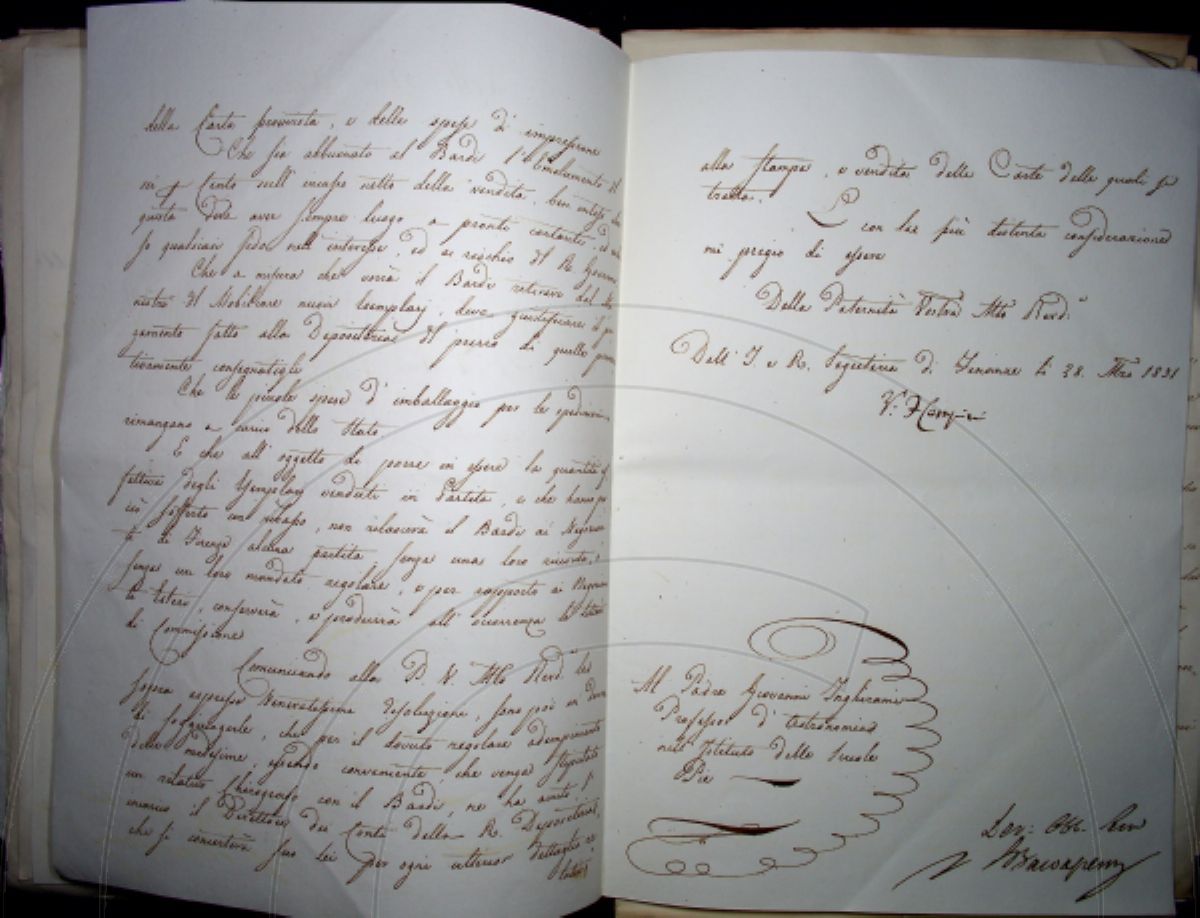 della Carta provvista, e delle spese d' impressione
Che sia abbuonato al Bardi l' Emolumento del
cento sull' incasso netto della vendita, ben inteso che
questa deve aver sempre luogo a pronti contanti, ed
so qualsiasi fido nell' interesse, ed a rischio del R. Governo
Che a misura che verrà il Bardi ritirare dal
nistro del Mobiliare nuovi Esemplarj, deve giustificare il pa
gamento fatto alla Depositeria del prezzo di quelli
tivamente consegnatigli
Che le piccole spese d' imballaggio per le spedizioni
rimangano a carico dello Stato
E che all' oggetto di porre in essere la quantità ef
fettiva degli Esemplarj venduti in Partita, e che hanno per
ciò sofferto un ribasso, non rilascerà il Bardi ai Negozian
ti di Firenze alcuna partita senza una loro ricevuta, o
senza un loro mandato regolare, e per rapporto ai Negozian
ti Esteri, conserverà, e produrrà all' occorrenza le lettere
di Commissione
Comunicando alla P. V. Mto Revd. la
sopra espressa Veneratissima Risoluzione, sono poi in dovere
di soggiungerle, che per il dovuto regolare adempimento
della medesima, essendo conveniente che venga stipulato
un relativo Chirografo con il Bardi, ne ha avuto l'
incarico il Direttore dei Conti della R. Depositeria,
che si concerterà seco Lei per ogni ulterior dettaglio re
lativo
alla stampa, e vendita delle Carte delle quali si
tratta.
E con la più distinta considerazione
mi pregio di essere
Della Paternità Vostra Mto Revd.
Dall' I. e R. Segreteria di Finanze li 28. Mzo 1831
Al Padre Giovanni Inghirami
Professor d' Astronomia
nell' Istituto delle Scuole
Pie
Dev: Obb. Serv